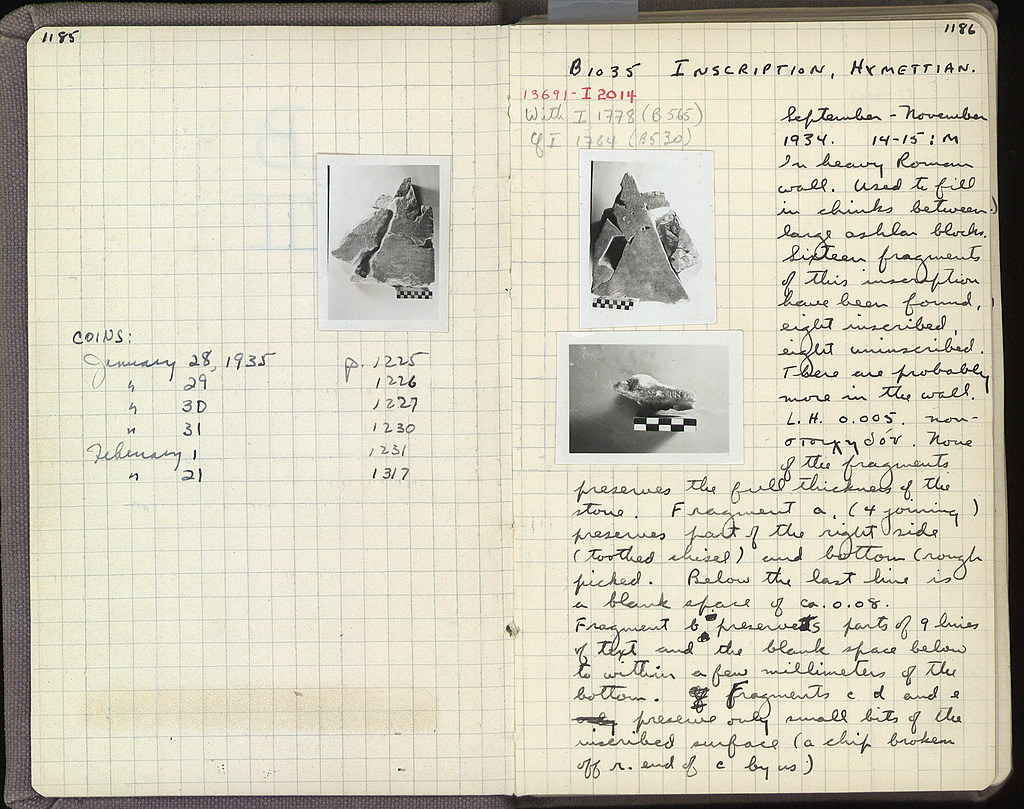 1185
COINS:
January 28, 1935 p. 1225
" 29 1226
" 30 1227
" 31 1230
February 1 1231
" 21 1317
1186
B1035 INSCRIPTION, HYMETTIAN.
13691-I 2014
With I 1778 (B565)
Cf I 1764 (B530)
September - November
1934. 14-15 : M
In heavy Roman
wall. Used to fill
in chinks between
large ashlar blocks.
Sixteen fragments
of this inscription
have been found,
eight inscribed,
eight uninscribed.
There are probably
more in the wall.
L.H. 0.005. non-
στοιχηδόν. None
of the fragments
preserves the full thickness of the
stone. Fragment a, (4 joining)
preserves part of the right side
(toothed chisel) and bottom (rough
picked. Below the last line is
a blank space of ca. 0.08.
Fragment b preserves parts of 9 lines
of text and the blank space below
to within a few millimeters of the
bottom. Fragments c d and e
only preserve only small bits of the
inscribed surface (a chip broken
off r. end of c by us)